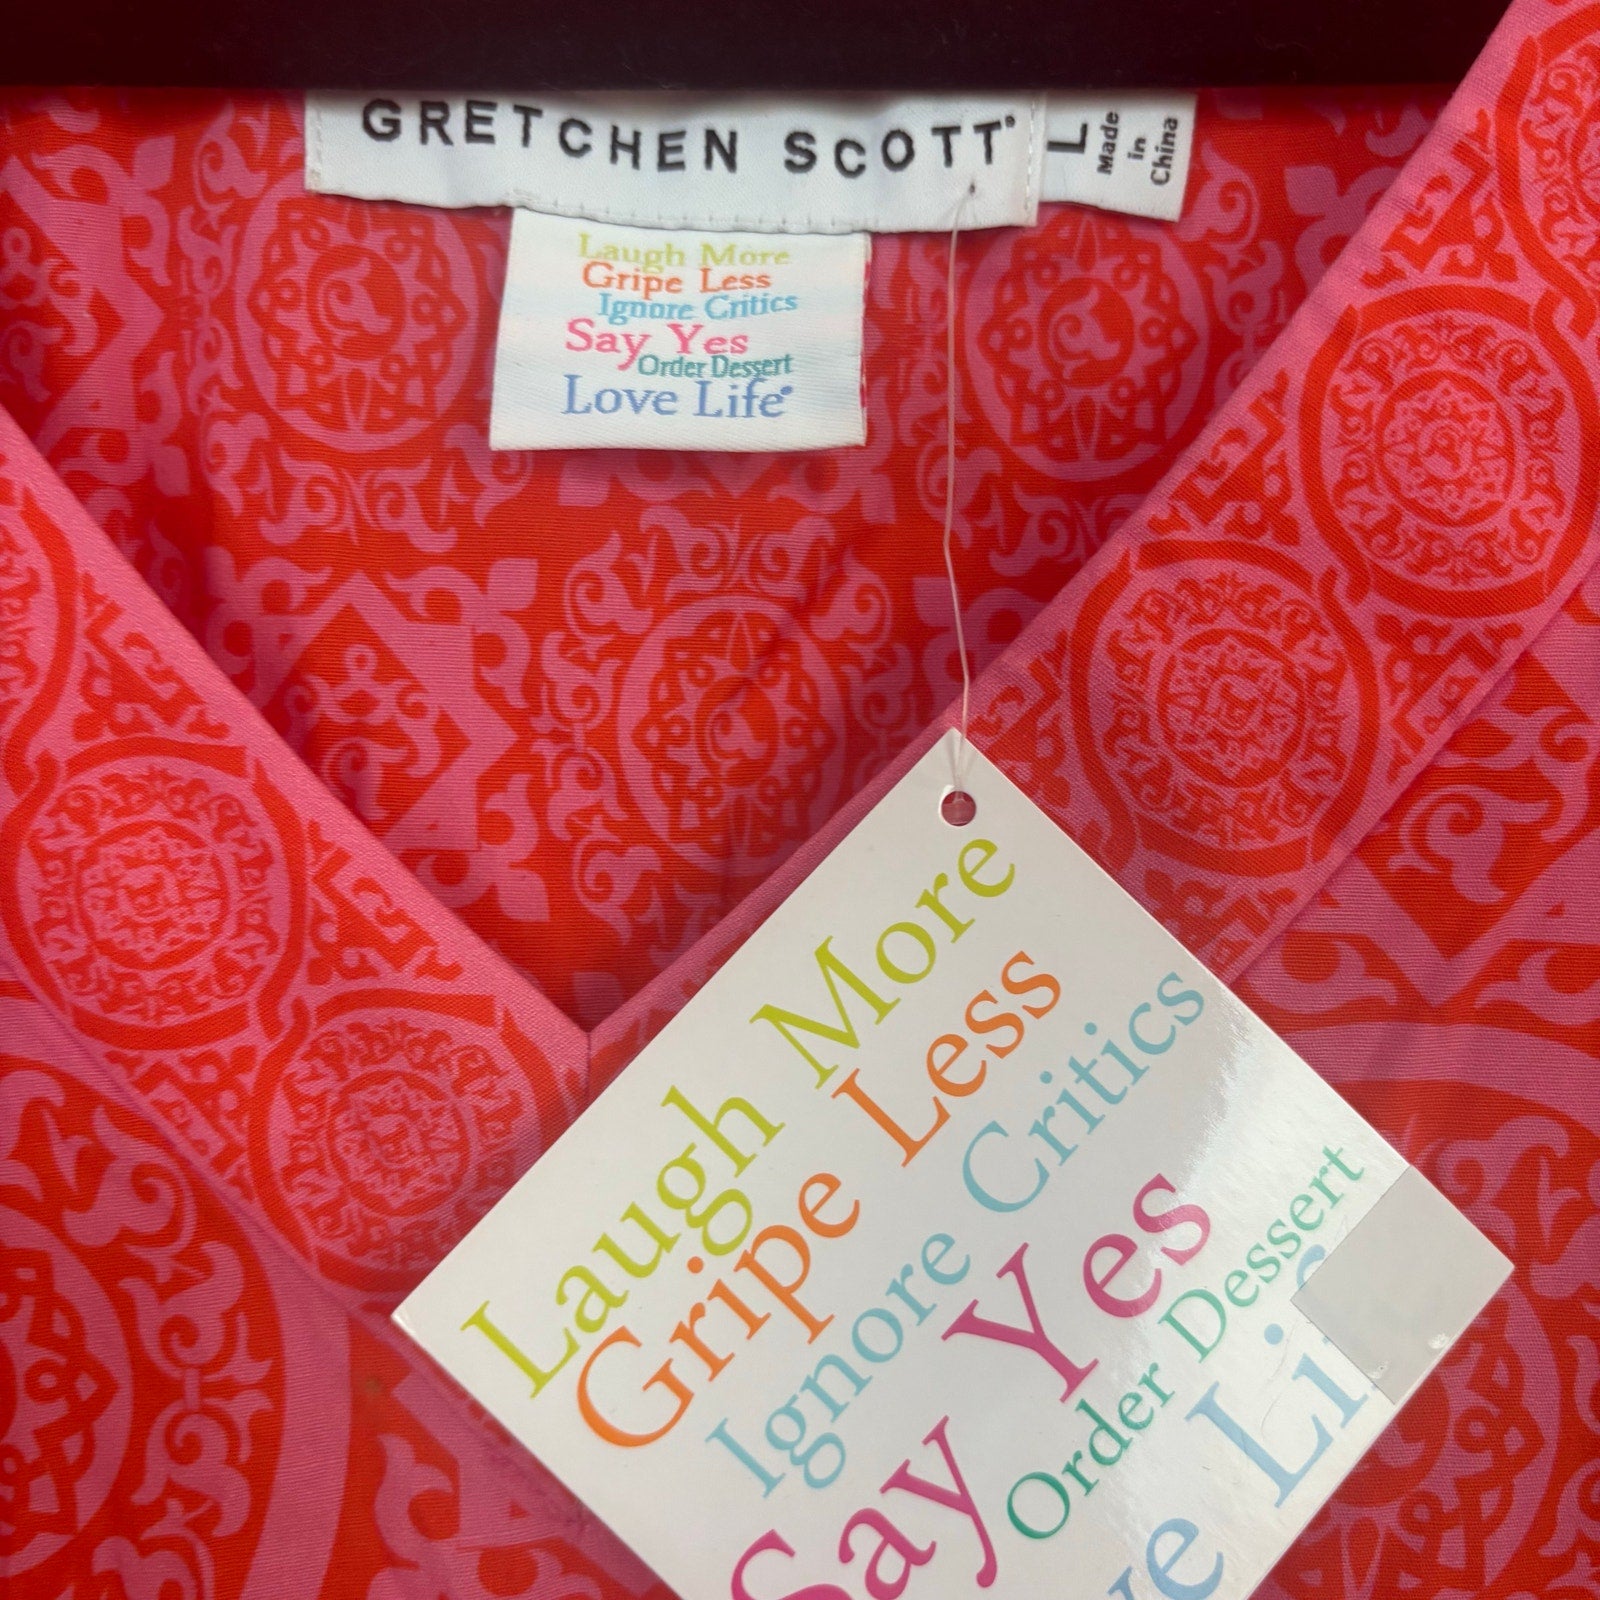 GRETCHEN SCOTT®
L
Made
in
China
Laugh More
Gripe Less
Ignore Critics
Say Yes
Order Dessert
Love Life®
Laugh More
Gripe Less
Ignore Critics
Say Yes
Order Dessert